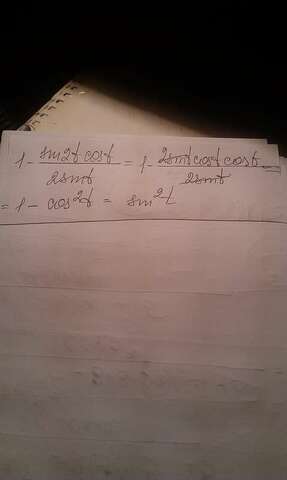 1 - sin2t cost / 2sint = 1 - 2sint cost cost / 2sint =
= 1 - cos²t = sin²t